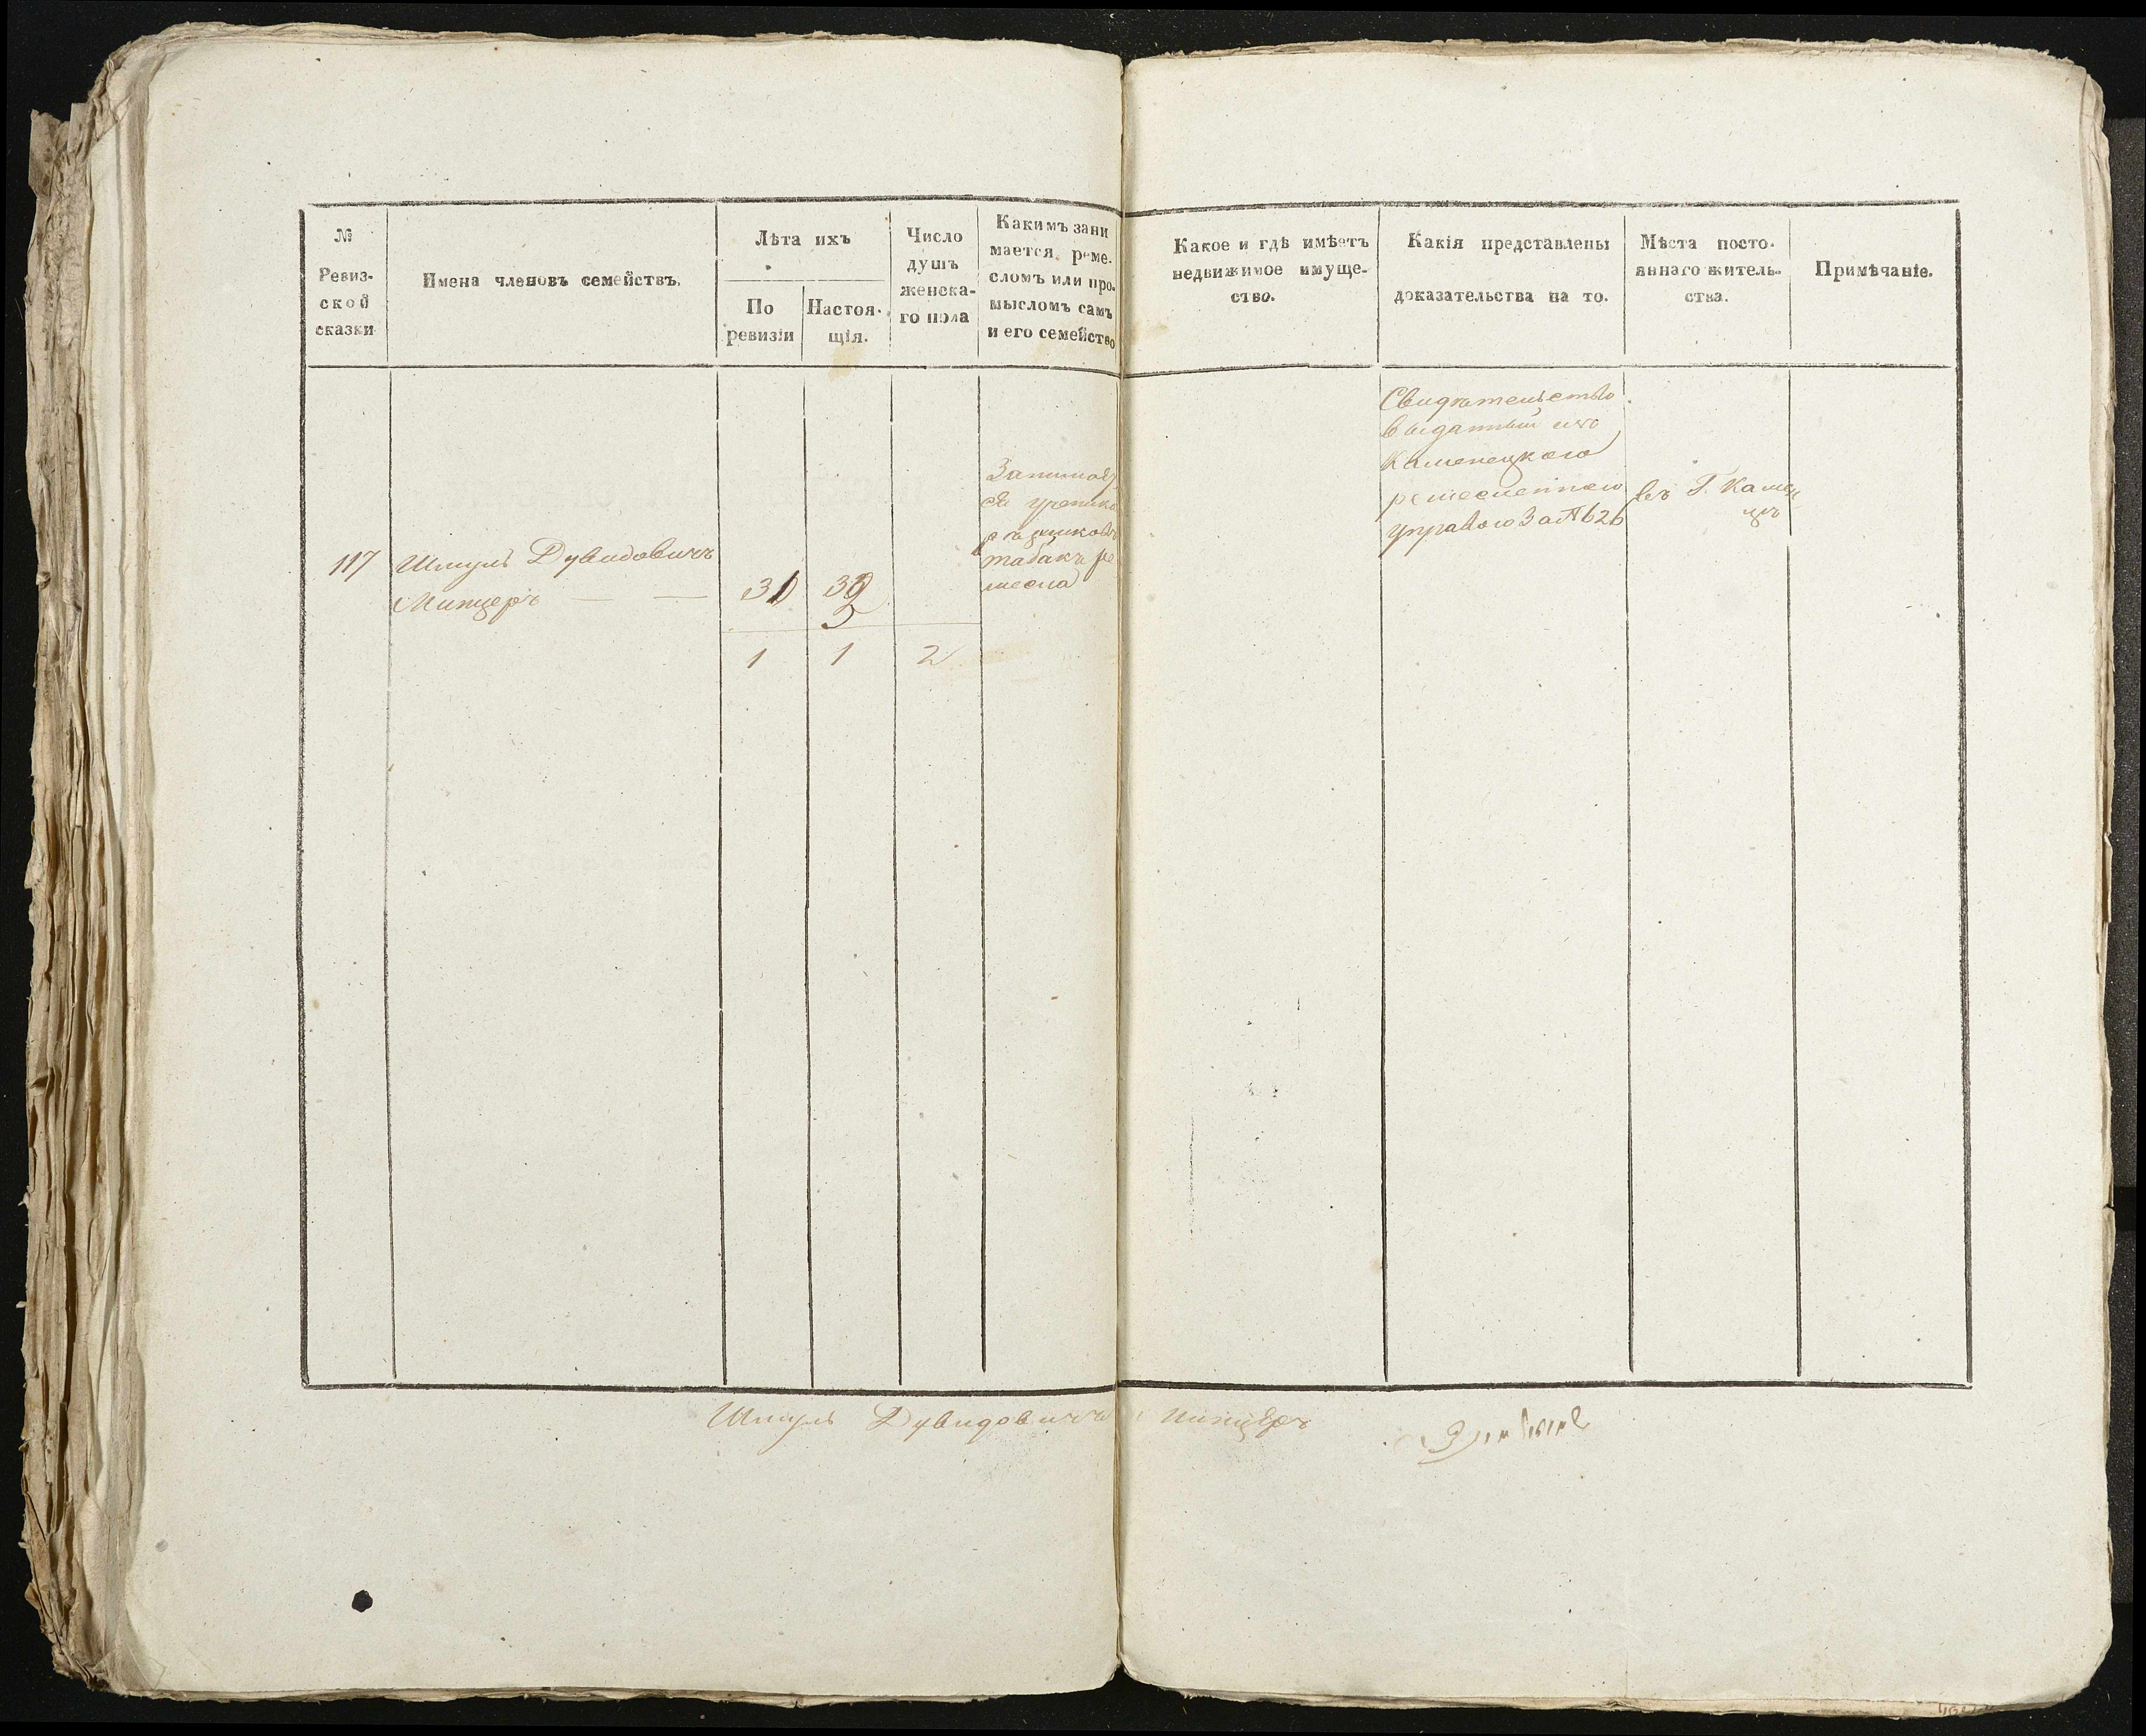 №
Ревиз-
ской
сказки
Имена членовъ семействъ.
Лѣта ихъ
По
ревизіи
Настоя-
щія.
Число
душъ
женска-
го пола
Какимъ зани
мается реме-
сломъ или про-
мысломъ самъ
и его семейство
Какое и гдѣ имѣетъ
недвижимое имуще-
ство.
Какія представлены
доказательства на то.
Мѣста посто-
яннаго житель-
ства.
Примѣчаніе.
117
Шмуль Дувидовичъ
Минцеръ
31
1
1
2
табакъ ре
месла
Свидѣтельство
выданный изъ
Каменецкого
ремесленного
управою За №626
въ Г. Камен
цѣ
Шмуль Дувидовичъ Минцеръ